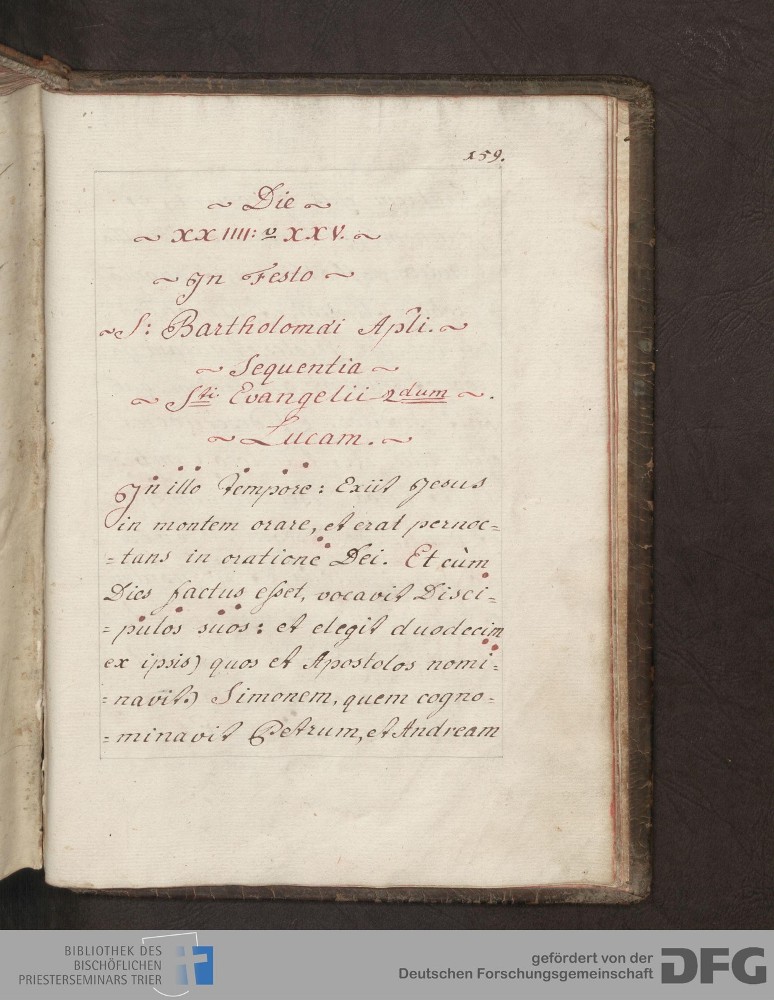 159.
~ Die ~
~ XXIIII: v XXV. ~
~ Jn Festo ~
~ S: Bartholomæi Apli. ~
~ Sequentia ~
~ Sti Evangelii 2dum ~.
~ Lucam. ~
Jn illo Tempore: Exiit Jesus
in montem orare, et erat pernoc=
=tans in oratione Dei. Et cùm
Dies factus esset, vocavit Disci=
=pulos suos: et elegit duodecim
ex ipsis) quos et Apostolos nomi=
=navit.) Simonem, quem cogno=
=minavit Petrum, et Andream
BIBLIOTHEK DES
BISCHÖFLICHEN
PRIESTERSEMINARS TRIER
gefördert von der
Deutschen Forschungsgemeinschaft
DFG